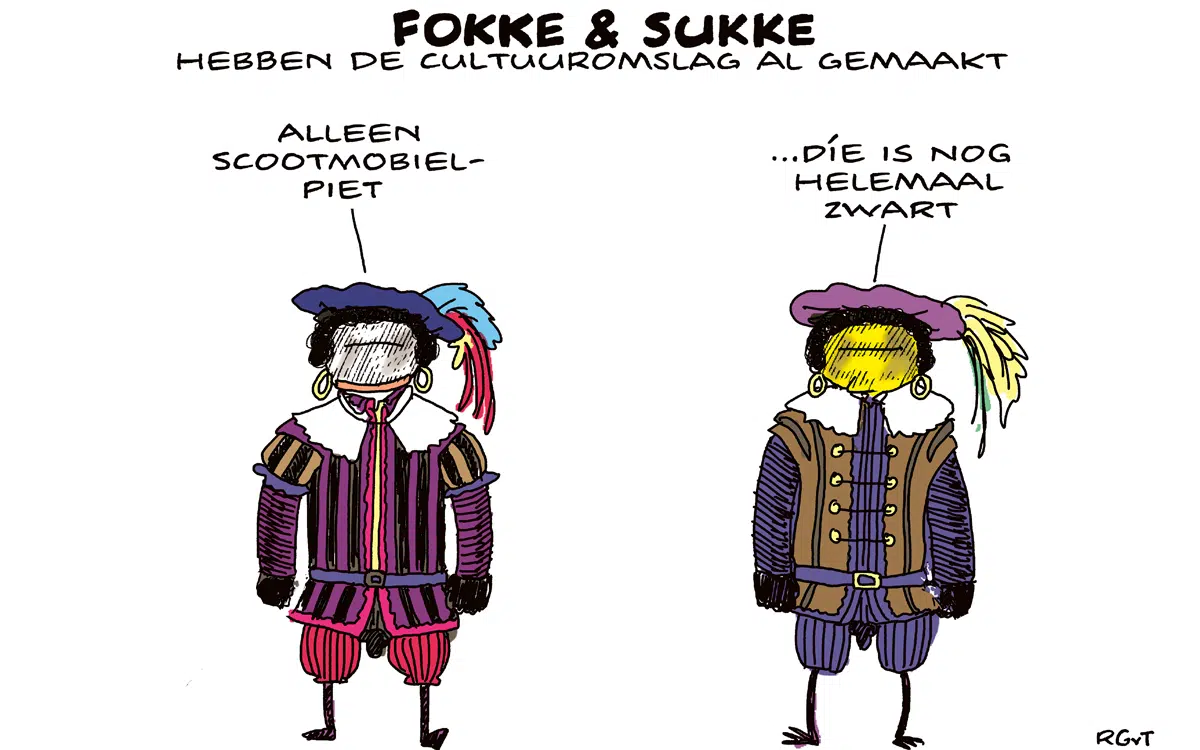 FOKKE & SUKKE
HEBBEN DE CULTUUROMSLAG AL GEMAAKT
ALLEEN
SCOOTMOBIEL-
PIET
...DÍE IS NOG
HELEMAAL
ZWART
RGvT